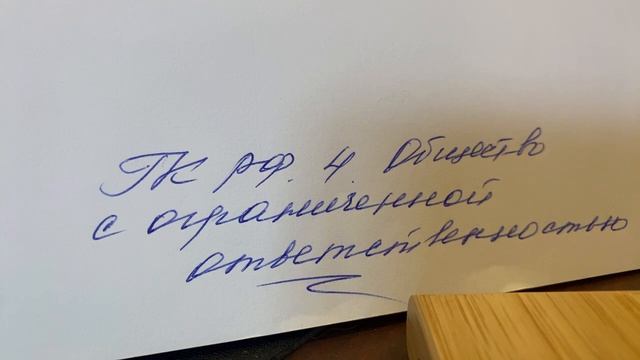 ГК РФ. 4. Общество
с ограниченной
ответственностью